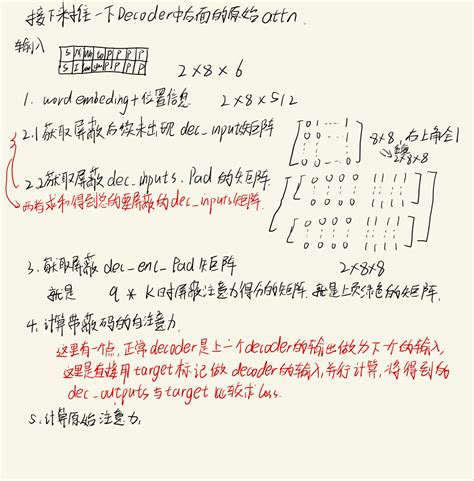 接下来推一下Decoder中后面的原始attn.
输入
2×8×6
1. word embeding+位置信息 2×8×512
2.1 获取屏蔽后续未出现 dec_inputs矩阵
8×8, 右上角全1
2×8×8
2.2 获取屏蔽 dec_inputs. Pad 的矩阵.
两者求和得到总的要屏蔽的dec_inputs矩阵.
3. 获取屏蔽 dec_enc_Pad 矩阵 2×8×8
就是 q * K时屏蔽注意力得分的矩阵. 就是上页绿色的矩阵.
4. 计算带蔽码的自注意力.
这里有一个点, 正常decoder是上一个decoder的输出做为下一个的输入,
这里是直接用target标记做decoder的输入, 并行计算, 将得到的
dec_outputs 与target 比较求loss.
5. 计算原始注意力,